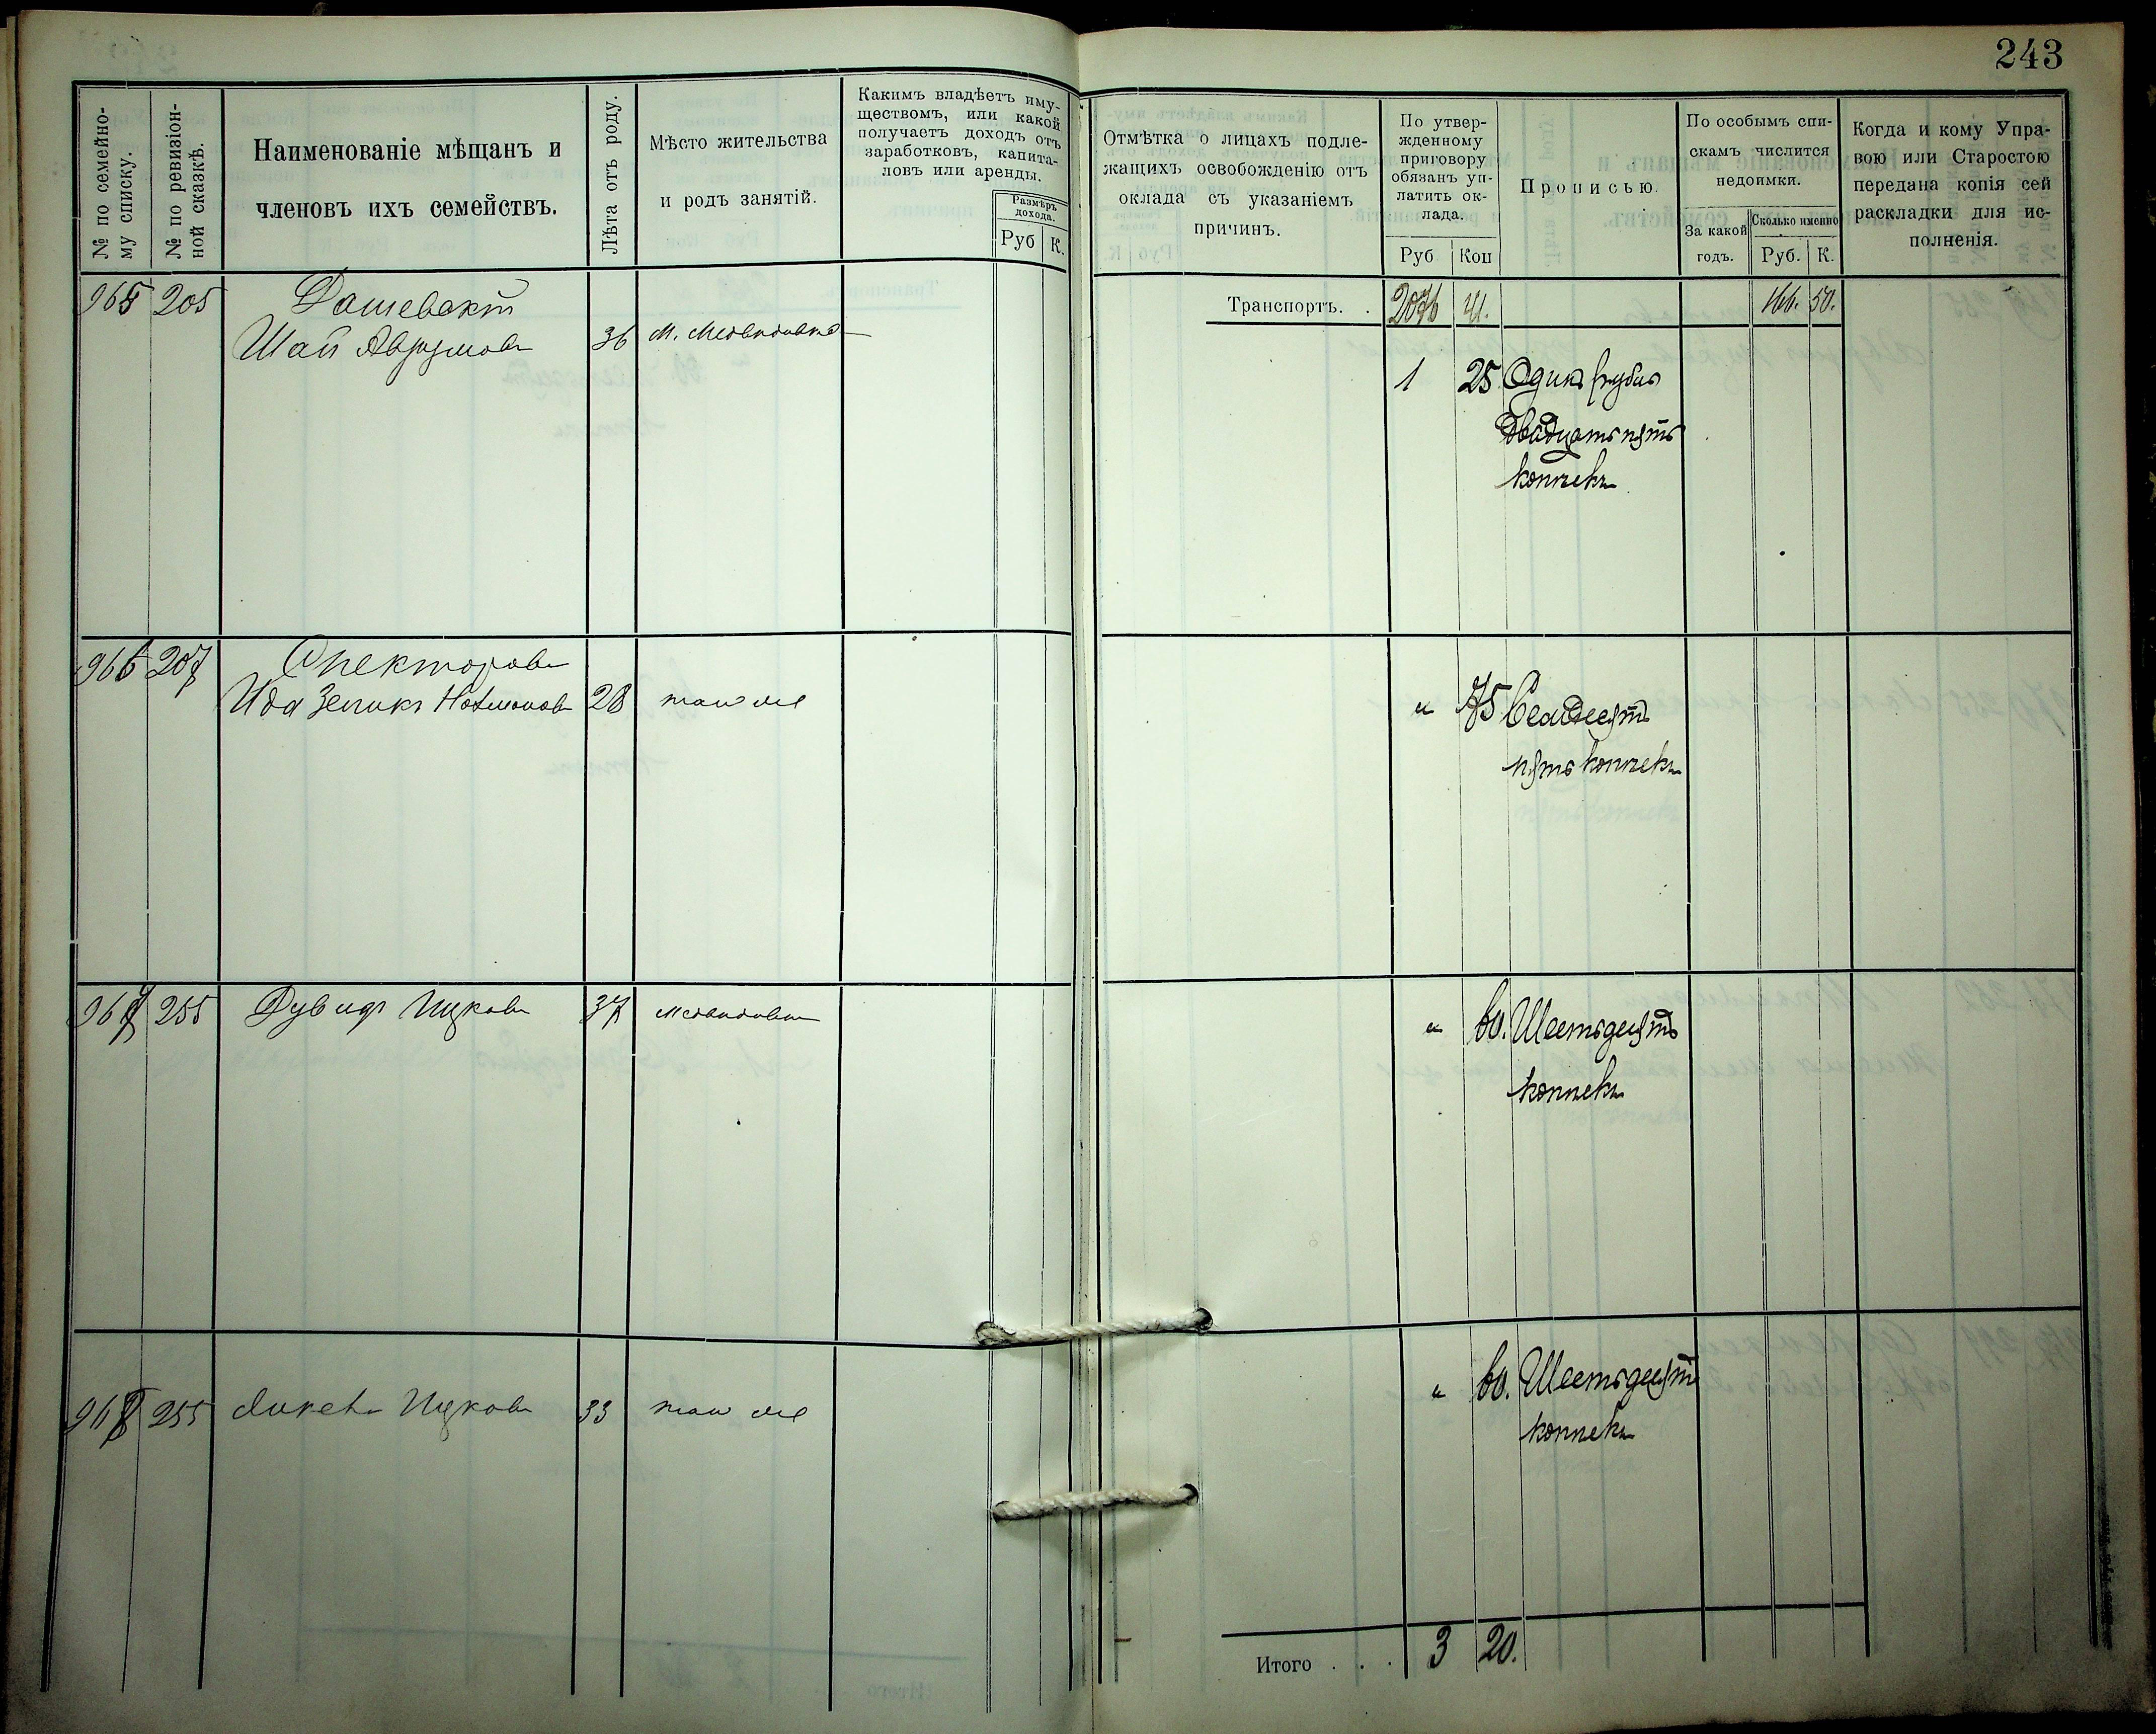 243
№ по семейно-
му списку.
№ по ревизіон-
ной сказкѣ.
Наименованіе мѣщанъ и
членовъ ихъ семействъ.
Лѣта отъ роду.
Мѣсто жительства
и родъ занятій.
Какимъ владѣетъ иму-
ществомъ, или какой
получаетъ доходъ отъ
заработковъ, капита-
ловъ или аренды.
Размѣръ
дохода.
Руб К.
Отмѣтка о лицахъ подле-
жащихъ освобожденію отъ
оклада съ указаніемъ
причинъ.
По утвер-
жденному
приговору
обязанъ уп-
латить ок-
лада.
Руб Коп
Прописью.
По особымъ спи-
скамъ числится
недоимки.
За какой
годъ.
Сколько именно
Руб. К.
Когда и кому Упра-
вою или Старостою
передана копія сей
раскладки для ис-
полненія.
Транспортъ. . 2076 41. 166. 50.
965 205 Дашевскій
Шая Аврумовъ 36 М.
1 25 Одинъ рубль
двадцать пять
копѣекъ
966 207 Спекторовъ
Ида Зеликъ Нахмановъ 28 тамъ же
" 75 Семдесятъ
пять копѣекъ
967 255 Дувидъ Ицковъ 37
" 60. Шестьдесятъ
копѣекъ
968 255 Ицковъ 33 тамъ же
" 60. Шестьдесятъ
копѣекъ
Итого . . . 3 20.